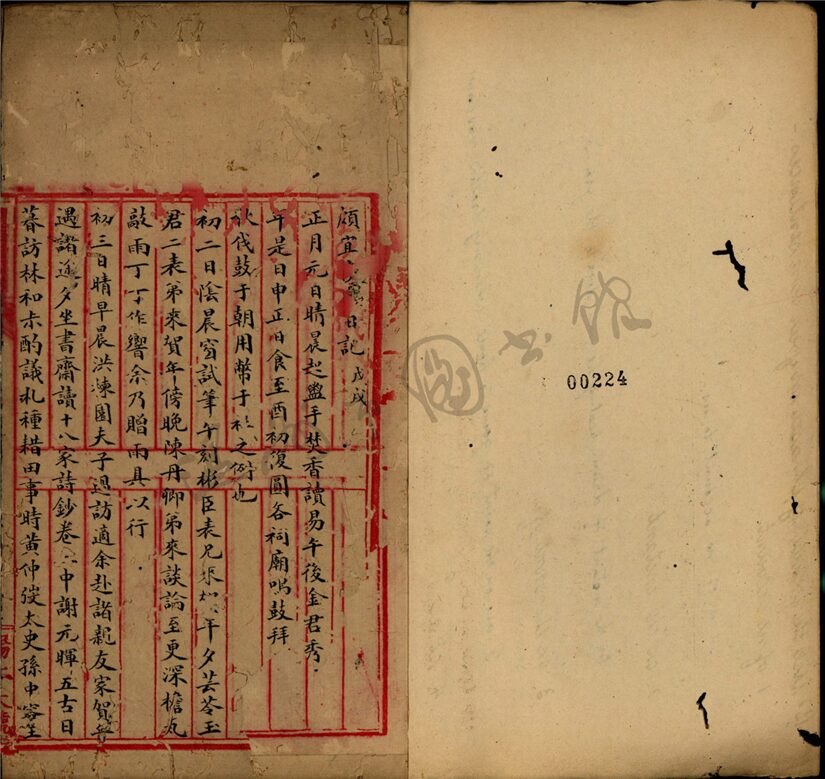 頑宜 日記戊戌
正月元日晴晨起盥手焚香讀易午後金君秀
年是日申正日食至酉初復圓各祠廟鳴鼓拜
伐鼓于朝用幣于社之例也
初二日陰晨窗試筆午刻彬臣表兄來 年夕芸苓玉
君二表弟來賀年傍晚陳丹卿弟來談論至更深檐瓦
敲雨丁丁作響余乃贈雨具以行
初三日晴早晨洪煉園夫子過訪適余赴諸親友家賀
遇諸途夕坐書齋讀十八家詩鈔卷 中謝元暉五古日
暮訪林和赤酌議札種耤田事時黃仲弢太史孫中容
圖書館
00224